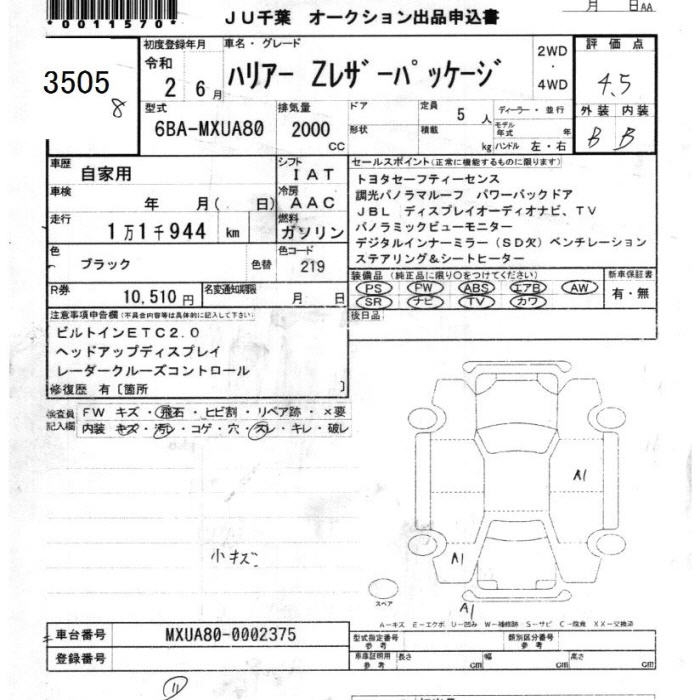 *0011570*
JU千葉 オークション出品申込書
月 日AA
3505
8
初度登録年月
令和
2 6月
車名・グレード
ハリアー Zレザーパッケージ
2WD
・
4WD
評価点
4.5
外装 内装
B B
型式
6BA-MXUA80
排気量
2000
CC
ドア
形状
定員
5 人
積載
kg
ディーラー・並行
モデル
年式 年
ハンドル 左・右
車歴
自家用
シフト
IAT
車検
年 月( 日)
冷房
AAC
走行
1万1千944 km
燃料
ガソリン
色
ブラック
色替
色コード
219
R券
10,510円
名変通知期限
月 日
セールスポイント(正常に機能するものに限ります)
トヨタセーフティーセンス
調光パノラマルーフ パワーバックドア
JBL ディスプレイオーディオナビ、TV
パノラミックビューモニター
デジタルインナーミラー(SD欠)ベンチレーション
ステアリング&シートヒーター
装備品(純正品に限り○をつけてください)
PS PW ABS エアB AW
SR ナビ TV カワ
新車保証書
有・無
後日品
注意事項申告欄(不具合内容等は具体的に記入して下さい)
ビルトインETC2.0
ヘッドアップディスプレイ
レーダークルーズコントロール
修復歴 有〔箇所 〕
検査員
記入欄
FW キズ・飛石・ヒビ割・リペア跡・×要
内装 キズ・汚レ・コゲ・穴・スレ・キレ・破レ
小キズ
A1
A1
A1
スペア
A-キズ E-エクボ U-凹み W-補修跡 S-サビ C-腐食 XX-交換済
車台番号
MXUA80-0002375
登録番号
型式指定番号
参考
類別区分番号
参考
車庫証明用
参考
長さ cm
幅 cm
高さ cm
11